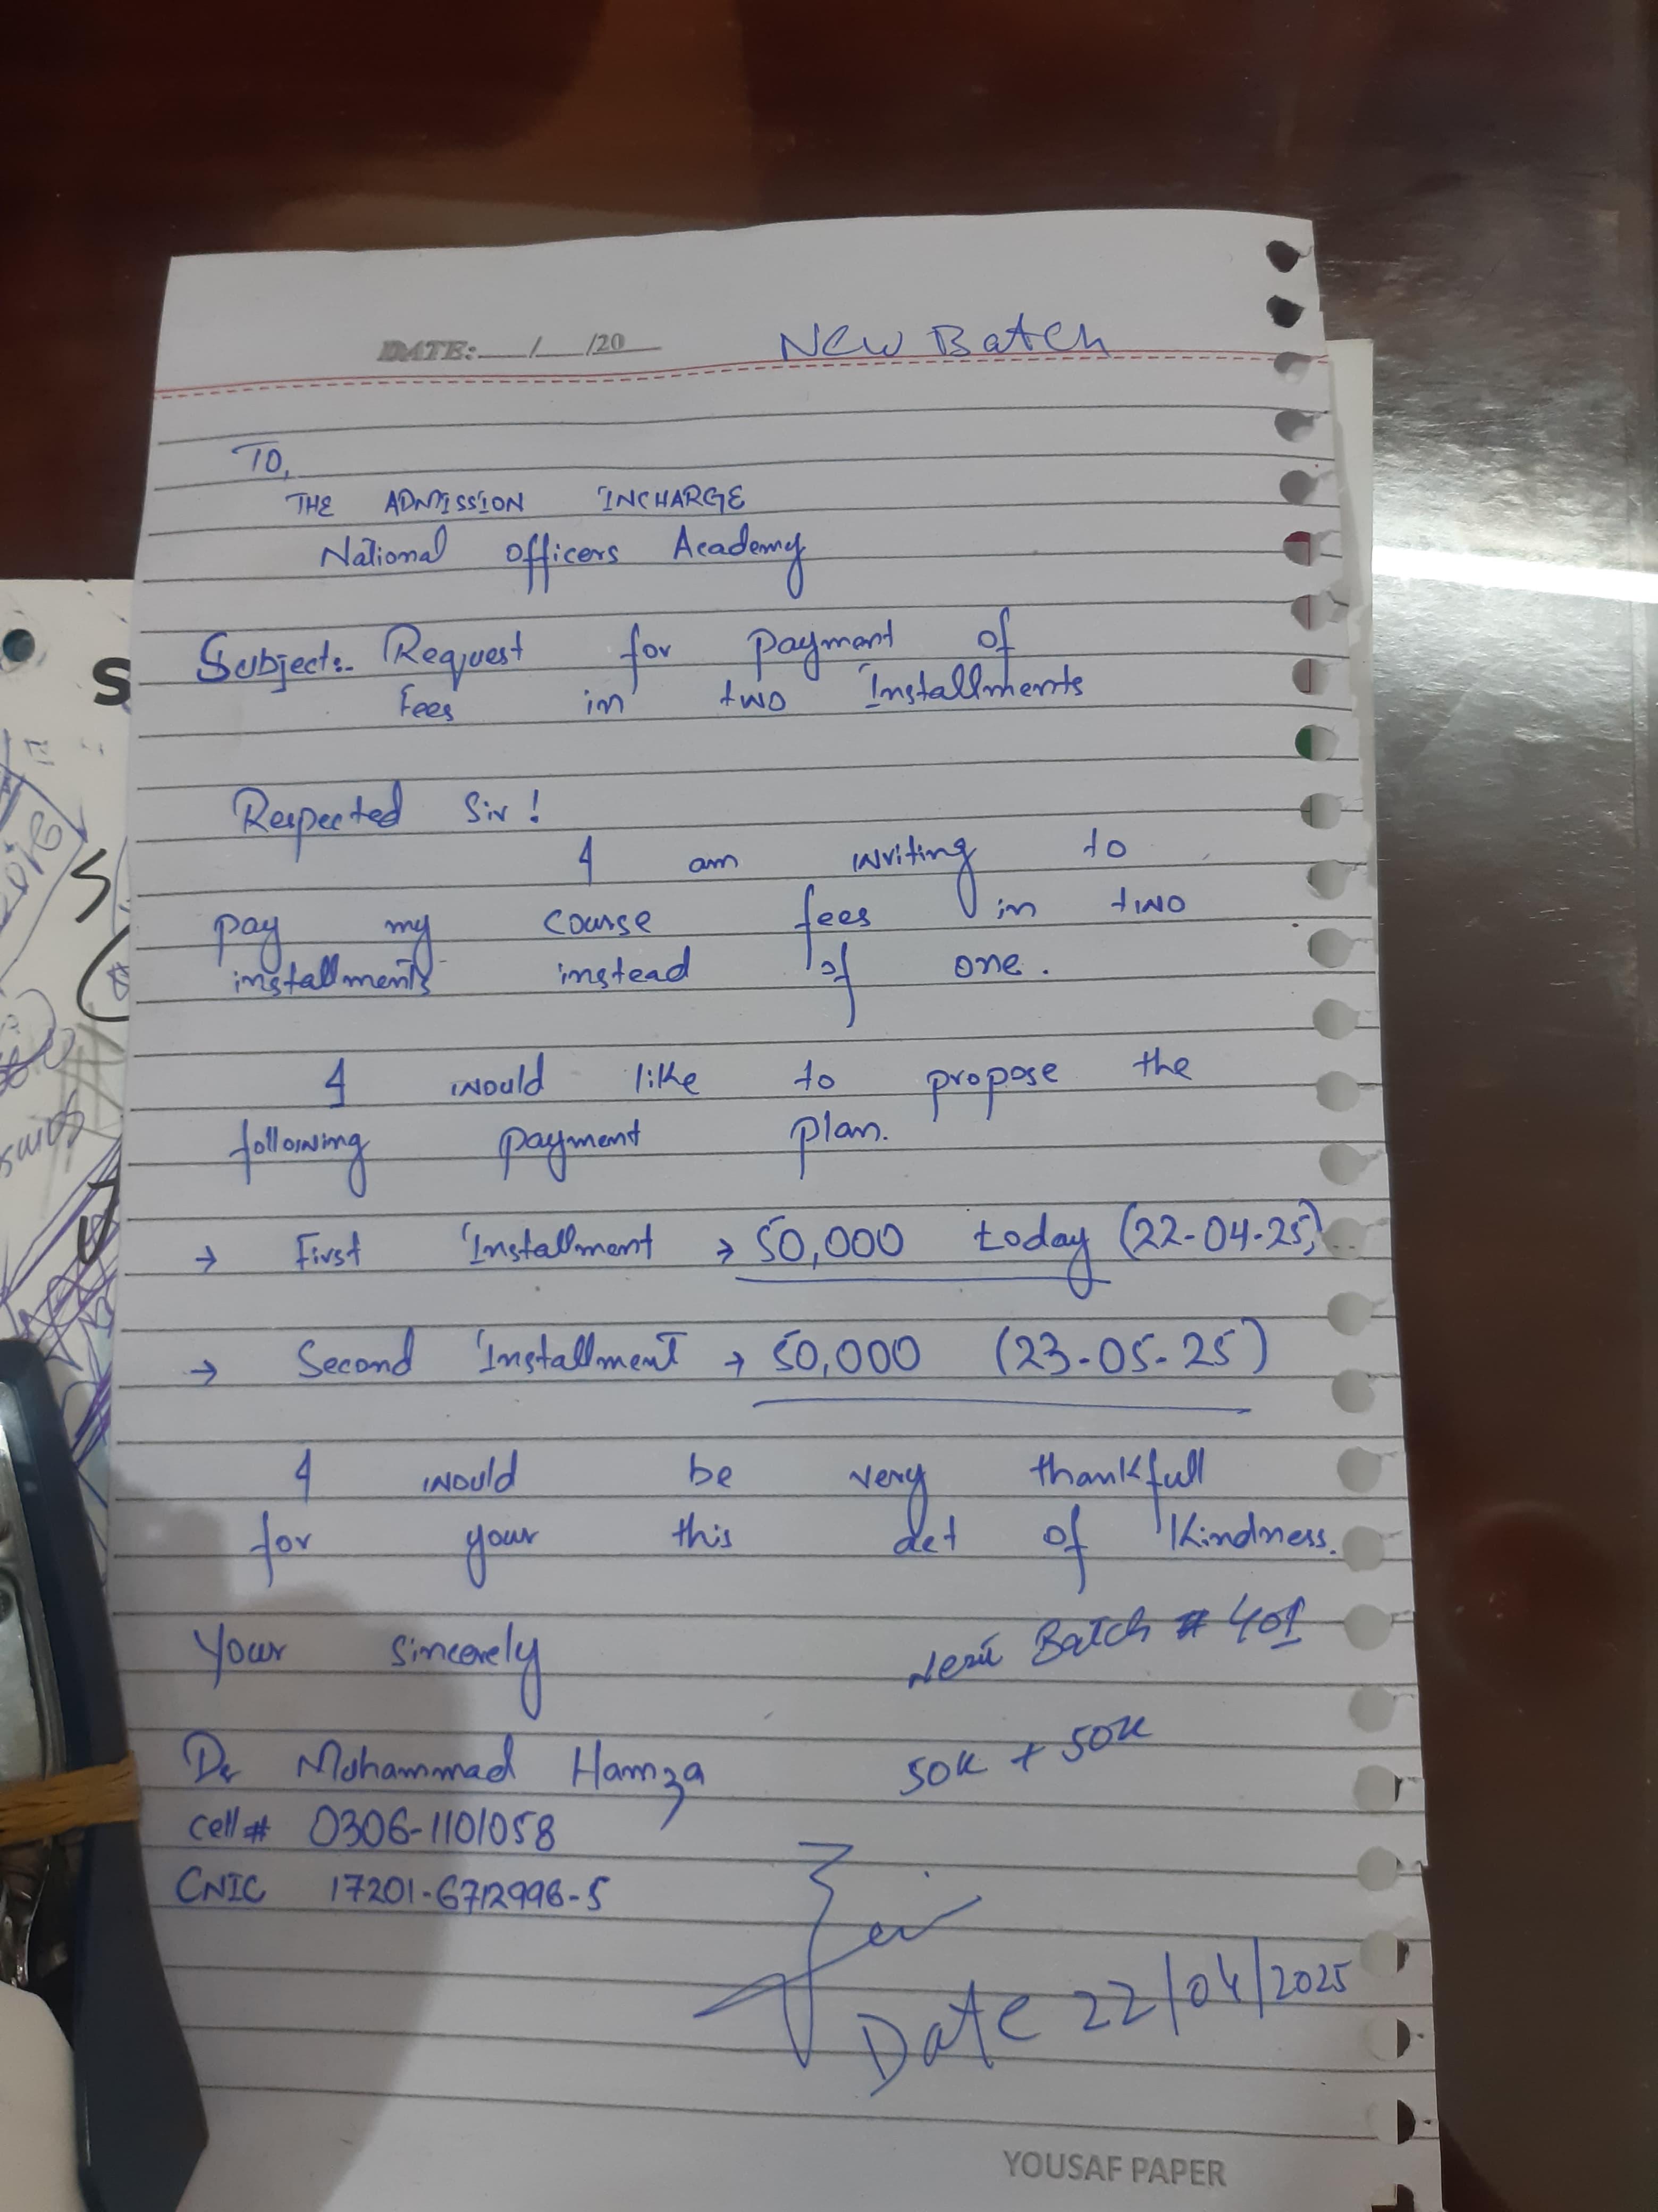 DATE: __/__/20__ New Batch
TO,
THE ADMISSION INCHARGE
National Officers Academy
Subject:- Request for Payment of
Fees in two Installments
Respected Sir!
I am writing to
pay my course fees in two
installments instead of one.
I would like to propose the
following payment plan.
→ First Installment → 50,000 today (22-04-25)
→ Second Installment → 50,000 (23-05-25)
I would be very thankfull
for your this act of Kindness.
Your Sincerely
Batch # 401
Dr Mohammad Hamza
50k + 50k
Cell# 0306-1101058
CNIC 17201-6712996-5
Date 22/04/2025
YOUSAF PAPER
S